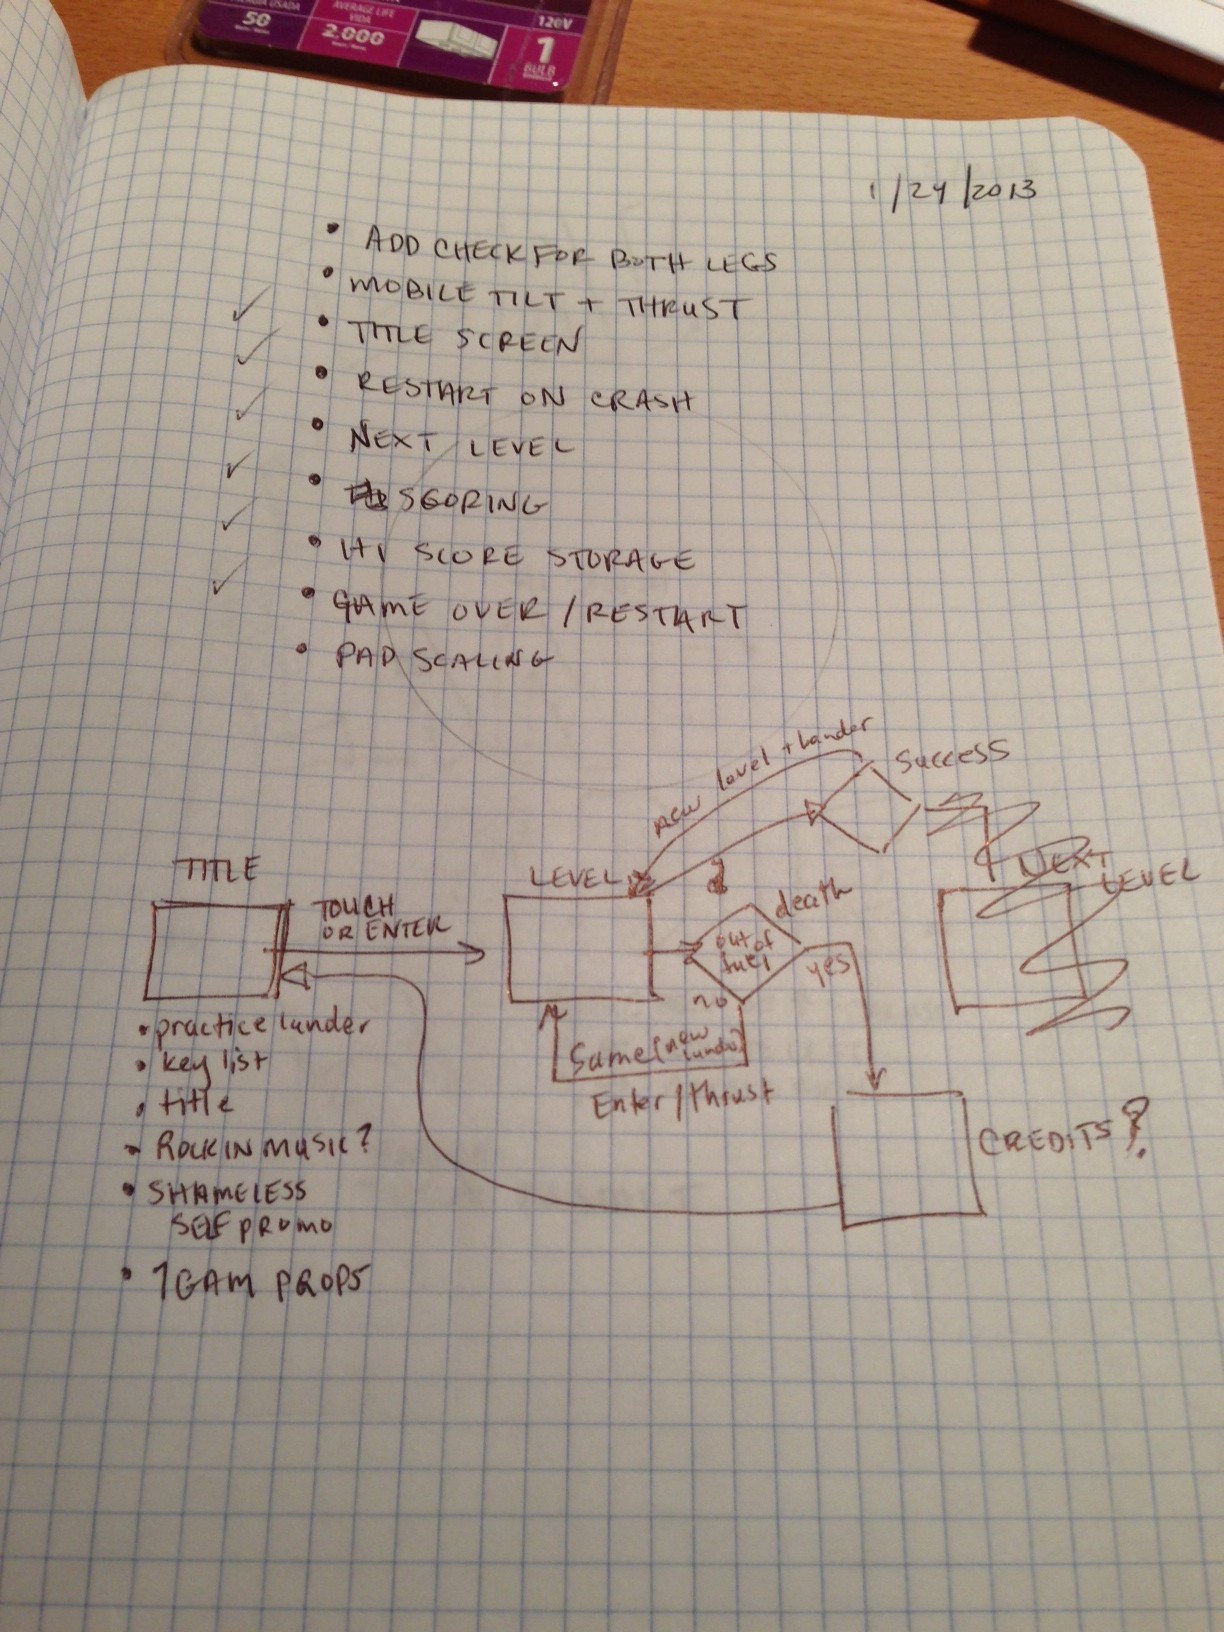 50
AVERAGE LIFE
VIDA
2.000
120V
1
BULB
1/24/2013
• ADD CHECK FOR BOTH LEGS
• MOBILE TILT + THRUST
✓ • TITLE SCREEN
✓ • RESTART ON CRASH
✓ • NEXT LEVEL
✓ • SCORING
✓ • HI SCORE STORAGE
✓ • GAME OVER / RESTART
• PAD SCALING
new level + lander
Success
TITLE
TOUCH
OR ENTER
LEVEL
death
out of
fuel
yes
no
NEXT
LEVEL
Same (new
lander)
Enter / thrust
CREDITS?
• practice lander
• key list
• title
• ROCKIN MUSIC?
• SHAMELESS
SELF PROMO
• 1GAM PROPS